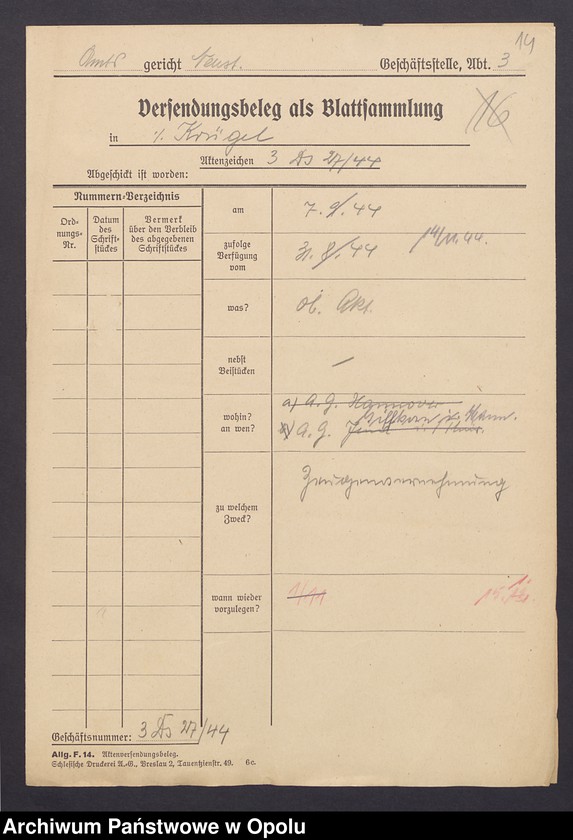 14
Amts gericht Neust. Geschäftsstelle, Abt. 3
Versendungsbeleg als Blattsammlung
16
in ./. Krügel
Aktenzeichen 3 Ds 27/44
Abgeschickt ist worden:
Nummern-Verzeichnis
Ord-nungs-Nr.
Datum des Schrift-stückes
Vermerk über den Verbleib des abgegebenen Schriftstückes
am 7. 9. 44
zufolge Verfügung vom 31. 8. 44 14/11. 44.
was? ob. Akt.
nebst Beistücken —
wohin? an wen? a) A. G. Hannover
A. G.
zu welchem Zweck? Zeugenvernehmung
wann wieder vorzulegen? 1/11
Geschäftsnummer: 3 Ds 27/44
Allg. F. 14. Aktenversendungsbeleg.
Schlesische Druckerei A.-G., Breslau 2, Tauentzienstr. 49. 6c.
Archiwum Państwowe w Opolu